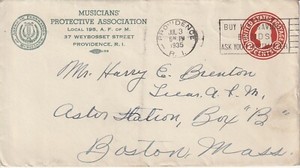 MUSICIANS'
PROTECTIVE ASSOCIATION
LOCAL 198, A. F. OF M.
37 WEYBOSSET STREET
PROVIDENCE, R. I.
PROVIDENCE
JUL 3
PM
1935
R. I.
BUY
ASK
UNITED STATES
CENTS
Mr. Harry E. Brenton
Treas. A. F. M.
Astor Station, Box "B"
Boston, Mass.